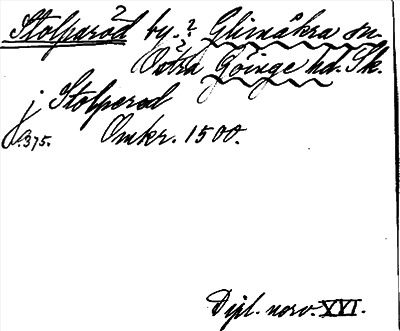 Stolparöd? by.? Glimåkra sn.
Östra Göinge hd. Sk.
j Stolperod
s.375. Omkr. 1500.
Dipl. norv. XVI.